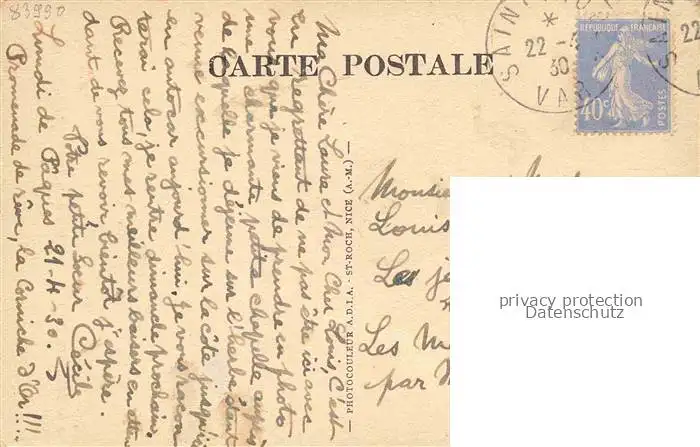 83990
CARTE POSTALE
SAINT
*
22 -4
30
VAR
REPUBLIQUE FRANÇAISE
40c
POSTES
22
Ma Chère Laure et Mon Cher Louis, C'est
en regrettant de ne pas être ici avec
vous que je viens de prendre en photo
une charmante petite chapelle auprès
de laquelle je déjeune sur l'herbe étant
venue excursionner sur la côte jusqu'ici
en autocar aujourd'hui. Je vous racon
terai cela, je rentre dimanche prochain,
Recevez tous mes meilleurs baisers en atten
dant de vous revoir bientôt j'espère.
Votre petite Sœur Cécile
Lundi de Pâques 21-4-30.
Promenade de rêve, la Corniche d'Or!!!..
— PHOTOCOULEUR A.D.I.A. - ST-ROCH, NICE (A.-M.) —
Monsieur
Louis
Les
Les
par
privacy protection
Datenschutz